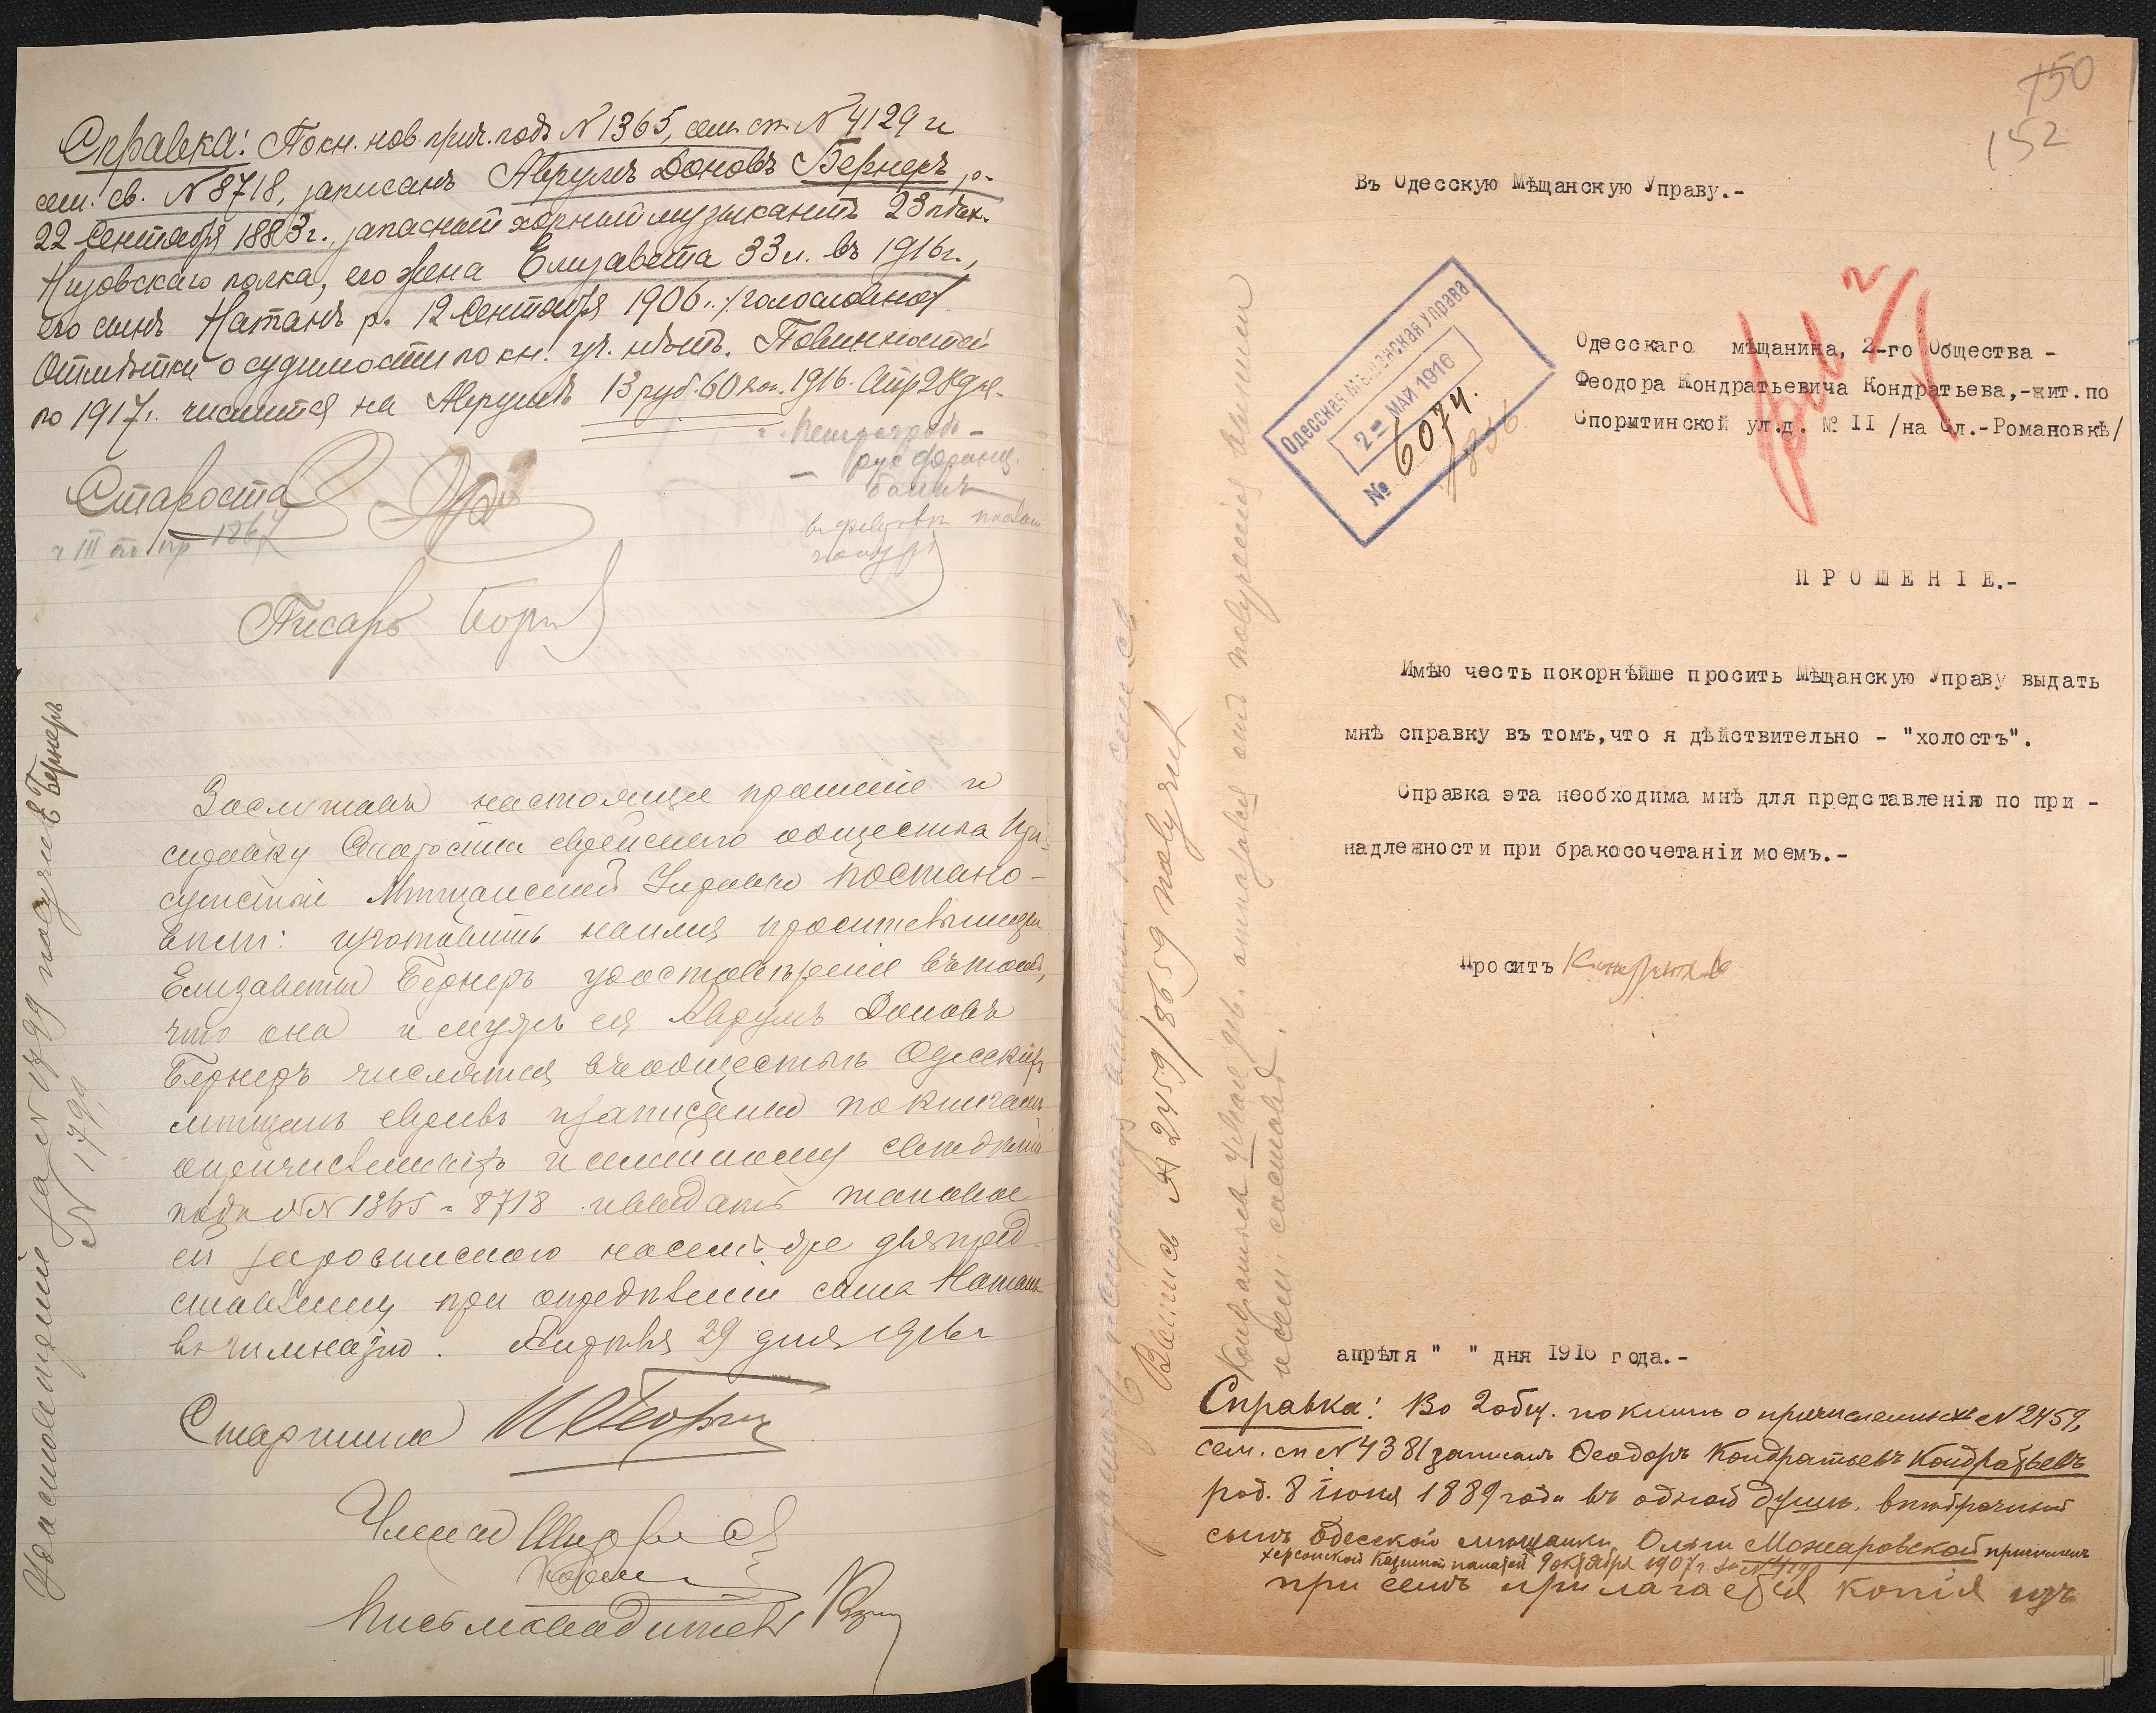 Справка: По кн. нов. прич. подъ N 1365, сем. сп. N 4129 и
сем. св. N 8718, записанъ Аврумъ Доновъ Бернеръ, р.
22 Сентября 1883 г., запасный хорный музыкантъ 23 пѣх.
Низовскаго полка, его жена Елизавета 33 л. въ 1916 г.,
его сынъ Натанъ р. 12 Сентября 1906 г. /голословно/.
Отмѣтки о судимости по кн. уч. нѣтъ. Повинностей
по 1917 г. числится на Аврумѣ 13 руб. 60 коп. 1916. Апр 28 дня.
Староста
Писарь
Заслушавъ настоящее прошеніе и
справку Старосты еврейскаго общества При-
сутствіе Мѣщанской Управы постано-
вило: изготовить на имя просительницы
Елизаветы Бернеръ удостовѣреніе въ томъ,
что она и мужъ ея Аврумъ Доновъ
Бернеръ числятся въ обществѣ Одесскихъ
мѣщанъ евреевъ и записаны по книгамъ
о причисленныхъ и семейному свѣдѣнію
подъ NN 1365 - 8718 и выдать таковое
ей
ставленія при опредѣленіи сына Натана
въ гимназію. Апрѣля 29 дня 1916 г
Старшина
Члены
Письмоводитель
Удостовѣреніе за N 1799 получилъ Бернеръ
N 1799
150
152
Въ Одесскую Мѣщанскую Управу.-
Одесская Мѣщанская Управа
2 = МАЙ 1916
№ 6074.
Одесскаго мѣщанина, 2-го Общества -
Феодора Кондратьевича Кондратьева,-жит. по
Спорытинской ул.д. № II /на Сл.-Романовкѣ/
ПРОШЕНІЕ.-
Имѣю честь покорнѣйше просить Мѣщанскую Управу выдать
мнѣ справку въ томъ,что я дѣйствительно - "холостъ".
Справка эта необходима мнѣ для представленія по при -
надлежности при бракосочетаніи моемъ.-
Проситъ Кондратьевъ
апрѣля " " дня 1916 года.-
Справка: Во 2 общ. по книгѣ о причисленныхъ N 2459,
сем. сп N 4381 записанъ Феодоръ Кондратьевъ Кондратьевъ
род. 8 іюня 1889 года въ одной душѣ, внѣбрачный
сынъ Одесской мѣщанки Ольги Можаровской причисленъ
Херсонской Казенной палатой 9 октября 1907 г. за N
при семъ прилагается копія изъ
N 2459/8659 получилъ